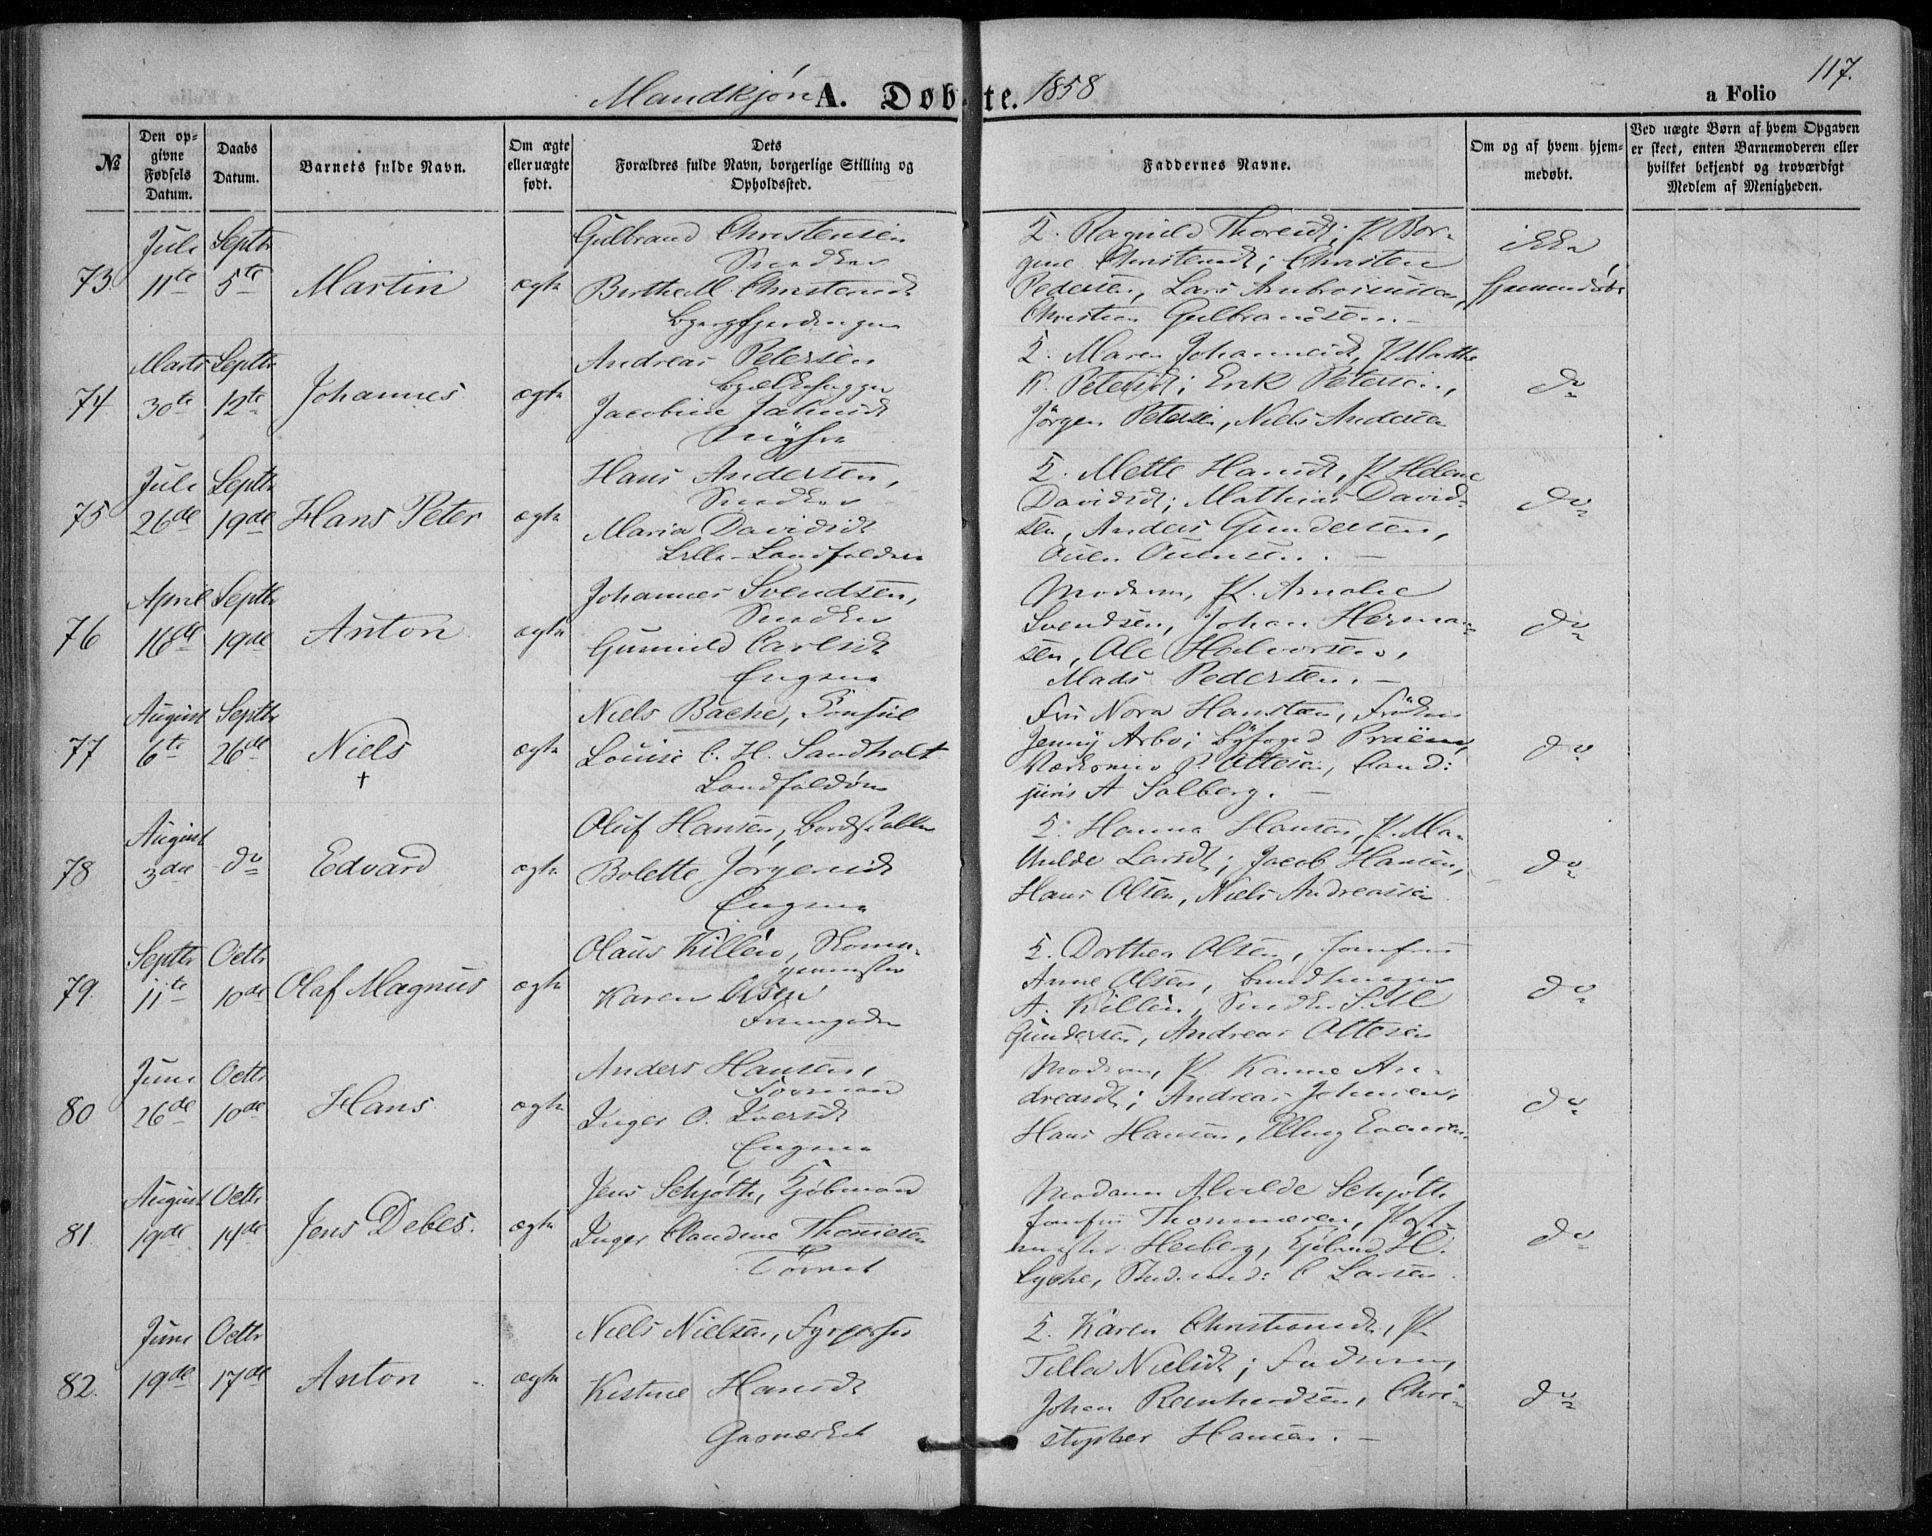 Mandkjøn A. Døbte. 1858
a Folio 117.
№
Den opgivne Fødsels Datum.
Daabs Datum.
Barnets fulde Navn.
Om ægte eller uægte født.
Dets Forældres fulde Navn, borgerlige Stilling og Opholdssted.
Faddernes Navne.
Om og af hvem hjemmedøbt.
Ved uægte Børn af hvem Opgaven er skeet, enten Barnemoderen eller hvilket bekjendt og troværdigt Medlem af Menigheden.
73. Juli 11te Septbr 5te Martin ægte
Gulbrand Christensen
Snedker
Berthe M. Christensdt
Bragfjerdingen
Ragnild Thoresdt; P. Bor-
gine Christensdt; Christen
Pedersen, Lars Ambrosiussen,
Christian Gulbrandsen. –
ikke hjemmedøbt
74 Marts 30te Septbr 12te Johannes ægte
Andreas Petersen
Bjælkehugger
Jacobine
K. Maren Johannesdt, P. Marthe
K. Petersdt; Erik Petersen,
Jörgen Petersen, Niels Andersen
do
75 Juli 26de Septbr 19de Hans Peter ægte
Hans Andersen,
Snedker
Maria Davidsdt
Lille-Landfalden
K. Mette Hansdt, P. Helene
Davidsdt; Mathias David-
sen, Anders Gundersen,
do
76 April 16de Septbr 19de Anton ægte
Johannes Svendsen,
Snedker
Gunnild Carlsdt
Engene
Moderen, P. Amalie
Svendsen, Johan Herman-
sen, Ole Halvorsen,
Mads Pedersen. –
do
77 August 6te Septbr 26de Niels † ægte
Niels Bache, Consul
Louise C. H. Sandholt
Landfaldøen
Fru Nora Hansteen, Frøken
Jenny Arbo; Byfoged Præem,
P. Ottesen, Cand:
juris A Solberg. –
do
78 August 3die do Edvard ægte
Oluf Hansen, Bordstabler
Bolette Jørgensdt
Engene
K. Hanna Hansen, P. Ma-
thilde Larsdt; Jacob Hansen,
Hans Olsen, Niels Andreassen
do
79. Septbr 11te Octbr 10de Olaf Magnus ægte
Olaus Killén, Skoma-
germester
Karen Olsen
K. Dorthea Olsen, Jomfru
Anne Olsen, Bundtmager
A. Killén, Snedker S. M.
Gundersen, Andreas Ottesen
do
80 Juni 26de Octbr 10de Hans ægte
Anders Hansen,
Formand
Inger O. Iversdt
Engene
Moderen, P. Karine An-
dreasdt; Andreas Johnsen,
Hans Hansen, Elling Evensen
do
81. August 19de Octbr 14de Jens Debes. ægte
Jens Schjøtt, Kjøbmand
Inger Claudine Thomesen
Torvet
Madame Alvilde Schjøtt
Jomfru Thommesen, Post-
mester Heiberg, Kjøbmd H.
Lyche, Stud. med: C Larsen.
do
82. Juni 19de Octbr 17de Anton ægte
Niels Nielsen, Fyrpasser
Kistine Hansdt
Gasværket
K. Karen Christiansdt, P.
Tilla Nielsdt; Faderen,
Johan Reinhardsen, Chri-
stopher Hansen. –
do